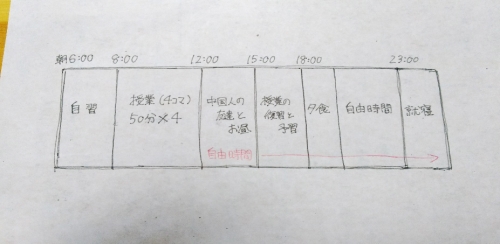 朝6:00 8:00 12:00 15:00 18:00 23:00
自習
授業(4コマ)
50分×4
中国人の
友達と
お昼
自由時間
授業の
復習と
予習
夕食
自由時間
就寝